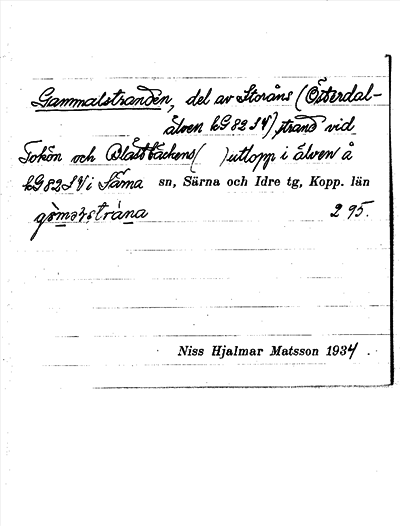 Gammalstranden, del av Storåns (Österdal-
älven bG 82 SV), strand vid
Tokön och Blåstbäckens ( ) utlopp i älven å
bG 82 SV i Särna sn, Särna och Idre tg, Kopp. län
2 95.
Niss Hjalmar Matsson 1934.